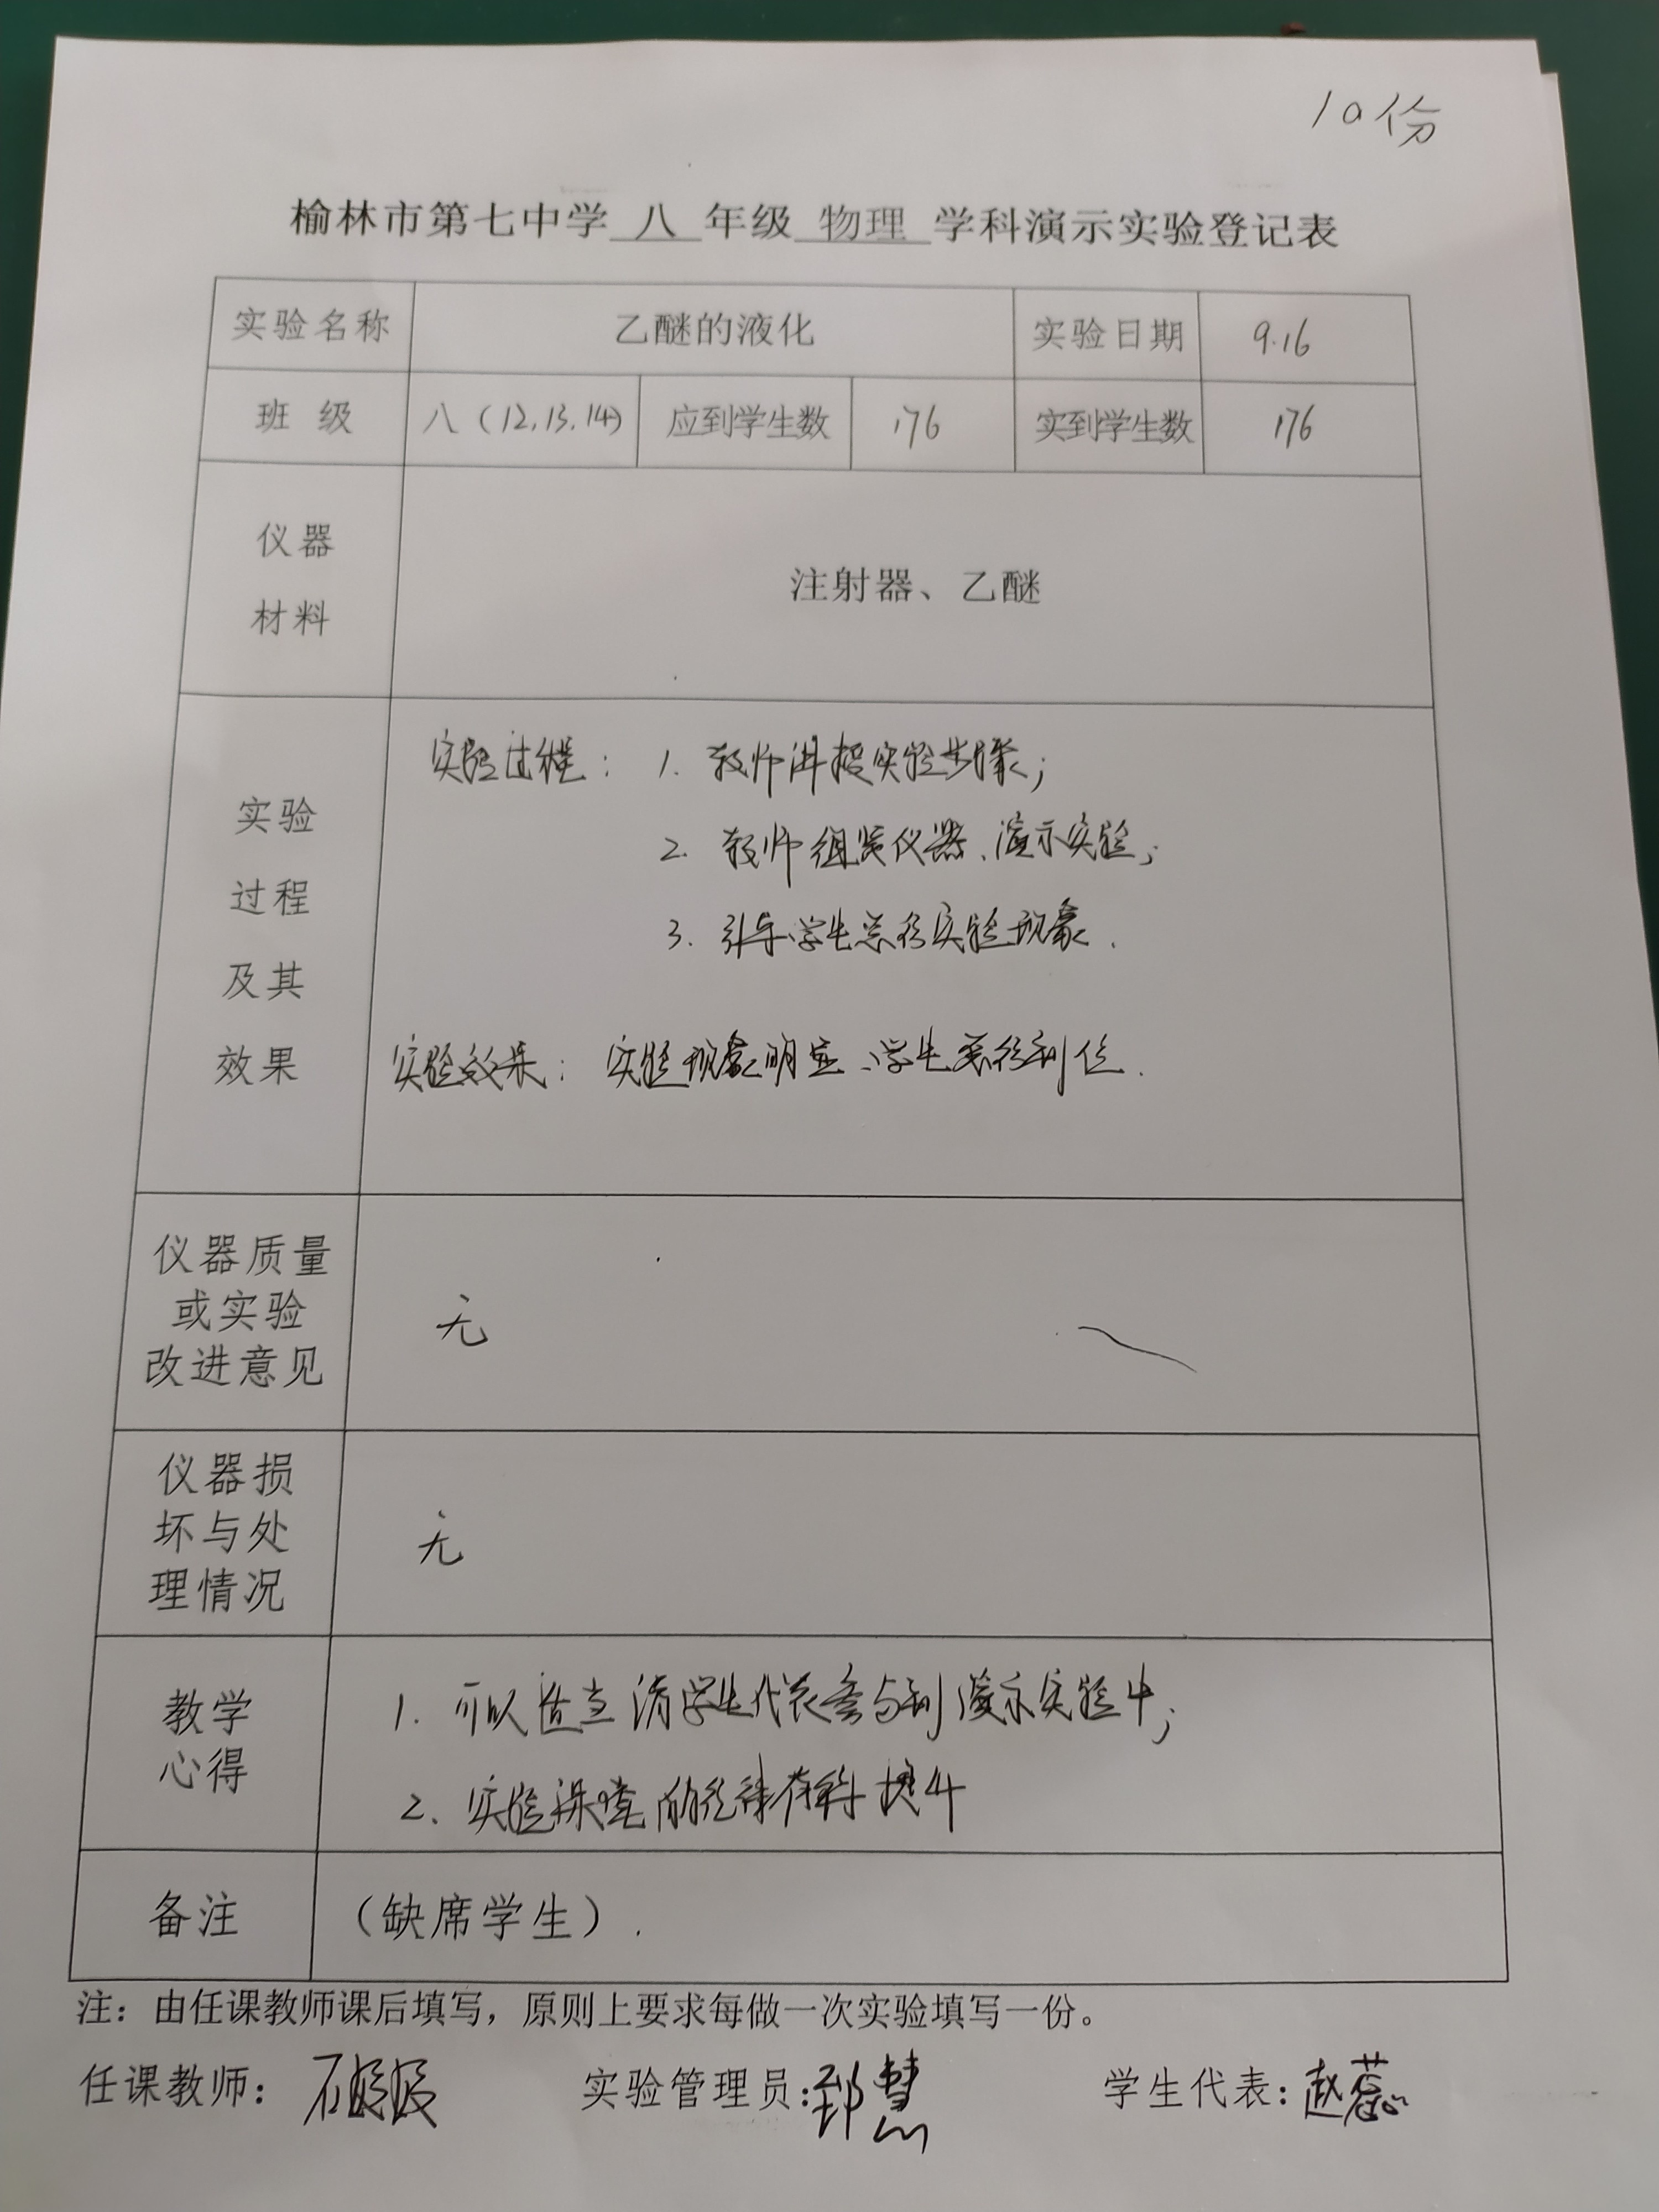 10份
榆林市第七中学 八 年级 物理 学科演示实验登记表
实验名称 乙醚的液化 实验日期 9.16
班 级 八(12,13,14) 应到学生数 176 实到学生数 176
仪器
材料
注射器、乙醚
实验
过程
及其
效果
实验过程: 1. 教师讲授实验步骤;
2. 教师组装仪器、演示实验;
3. 引导学生总结实验现象.
实验效果: 实验现象明显、学生总结到位.
仪器质量
或实验
改进意见
无
仪器损
坏与处
理情况
无
教学
心得
1. 可以适当请学生代表参与到演示实验中;
2. 实验课堂的纪律有待提升
备注 (缺席学生).
注:由任课教师课后填写,原则上要求每做一次实验填写一份。
任课教师: 实验管理员: 慧 学生代表:赵蕊